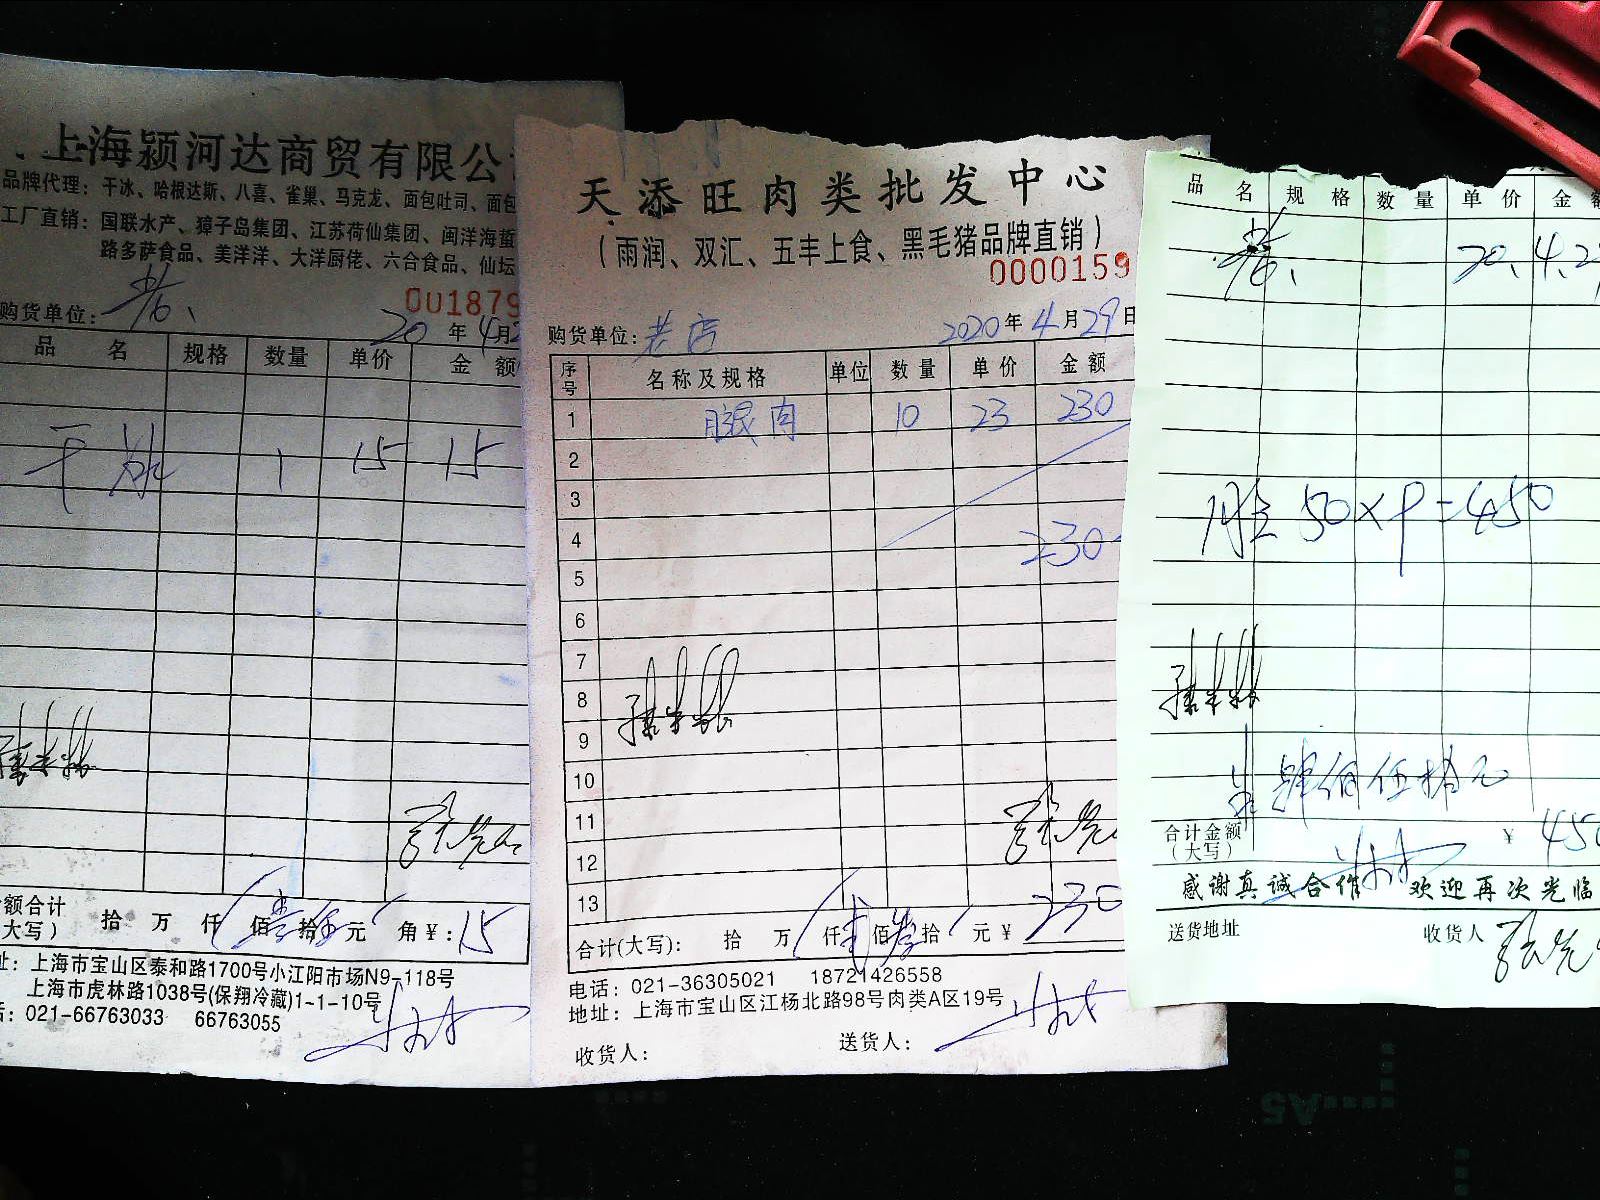 上海颍河达商贸有限公
品牌代理：干冰、哈根达斯、八喜、雀巢、马克龙、面包吐司、面包
工厂直销：国联水产、獐子岛集团、江苏荷仙集团、闽洋海蜇
路多萨食品、美洋洋、大洋厨佬、六合食品、仙坛
001879
购货单位：
20年4月
品 名 规格 数量 单价 金 额
干冰 1 15 15
额合计（大写） 拾 万 仟 佰 壹拾伍元 角￥：15
址：上海市宝山区泰和路1700号小江阳市场N9-118号
上海市虎林路1038号(保翔冷藏)1-1-10号
话：021-66763033 66763055
天添旺肉类批发中心
（雨润、双汇、五丰上食、黑毛猪品牌直销）
0000159
购货单位：老店 2020年4月29日
序号 名称及规格 单位 数量 单价 金额
1 腿肉 10 23 230
2
3
4 230
5
6
7
8
9
10
11
12
13
合计(大写)： 拾 万 仟 贰佰叁拾 元￥ 230
电话：021-36305021 18721426558
地址：上海市宝山区江杨北路98号肉类A区19号
收货人： 送货人：
品 名 规 格 数 量 单 价 金 额
20.4.2
50×9=450
肆佰伍拾元
合计金额（大写） ￥ 450
感谢真诚合作 欢迎再次光临
送货地址 收货人